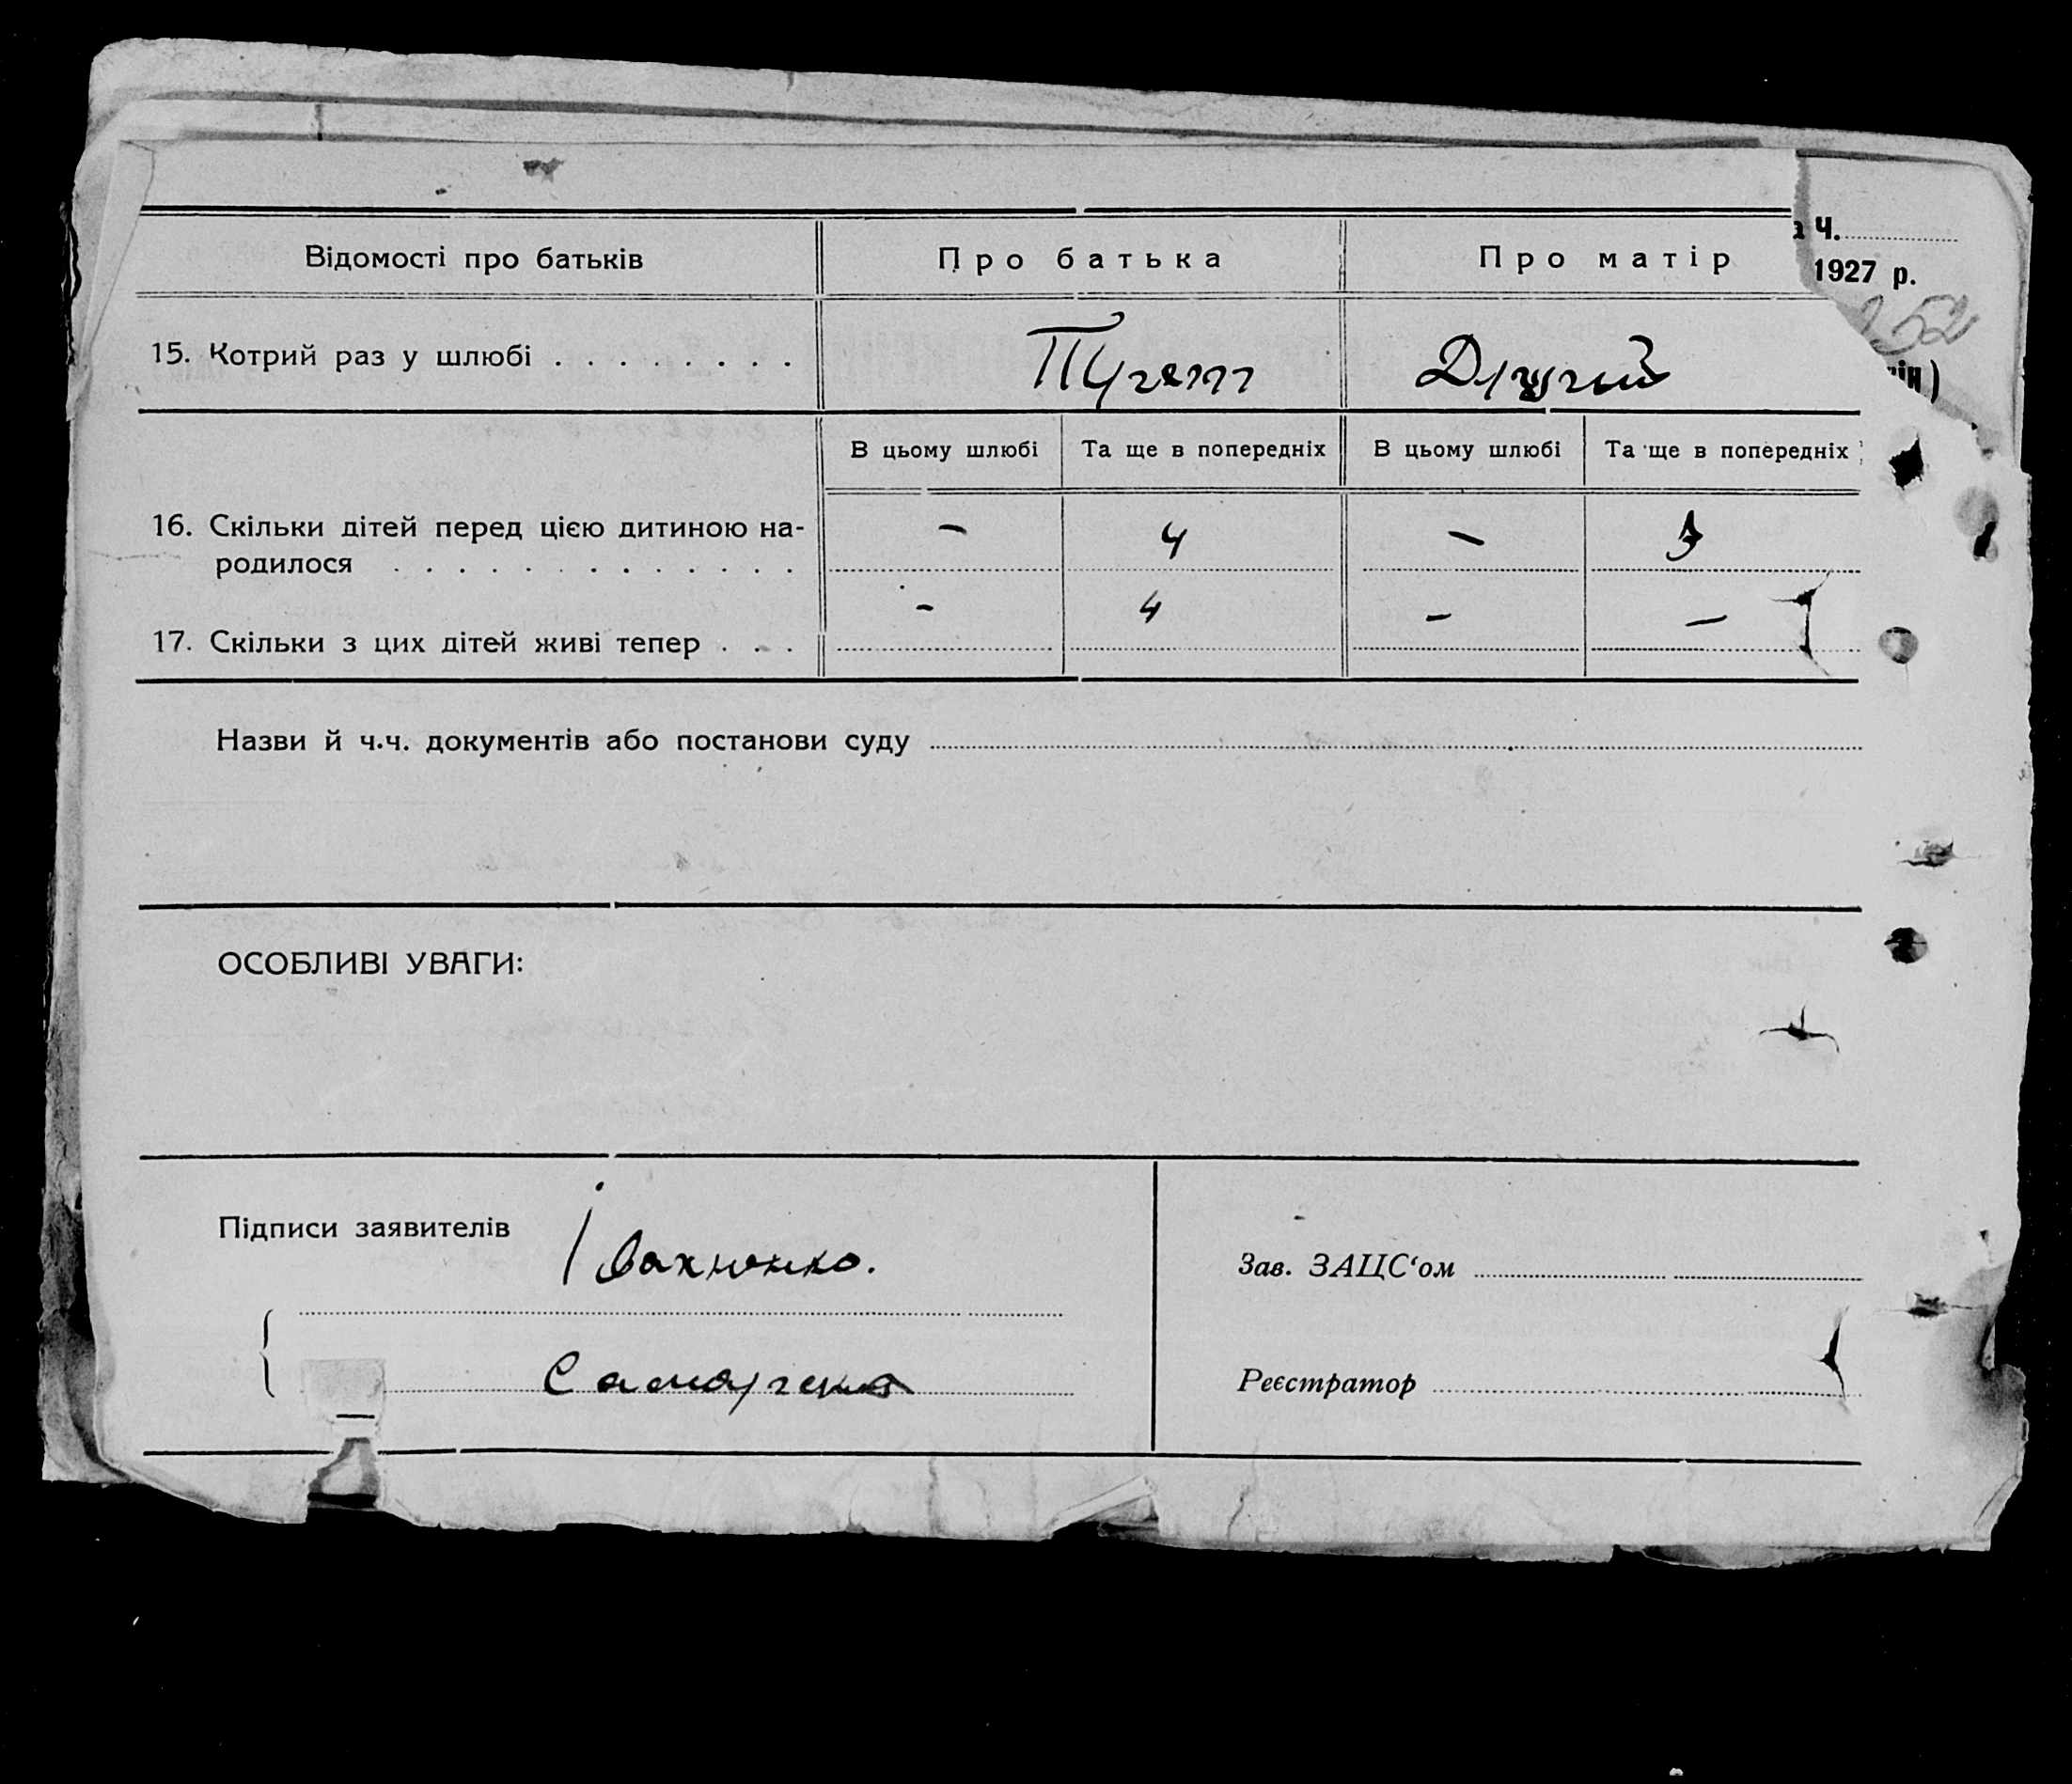 а Ч.
Відомості про батьків Про батька Про матір
1927 р.
252
15. Котрий раз у шлюбі Другий
ін)
В цьому шлюбі Та ще в попередніх В цьому шлюбі Та ще в попередніх
16. Скільки дітей перед цією дитиною на- – 4 – 3
родилося
17. Скільки з цих дітей живі тепер - 4 - –
Назви й ч.ч. документів або постанови суду
ОСОБЛИВІ УВАГИ:
Підписи заявителів Івахненко.
Зав. ЗАЦС‘ом
Реєстратор